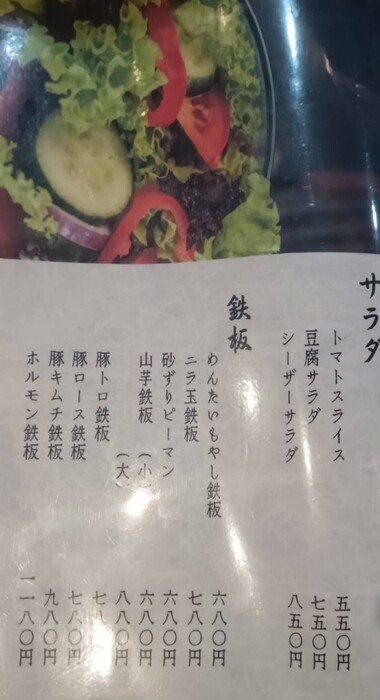 サラダ
トマトスライス 五五〇円
豆腐サラダ 七五〇円
シーザーサラダ 八五〇円
鉄板
めんたいもやし鉄板 六八〇円
ニラ玉鉄板 七八〇円
砂ずりピーマン 六八〇円
山芋鉄板 (小) 六八〇円
(大) 八八〇円
豚トロ鉄板 七八〇円
豚ロース鉄板 七八〇円
豚キムチ鉄板 九八〇円
ホルモン鉄板 一一八〇円